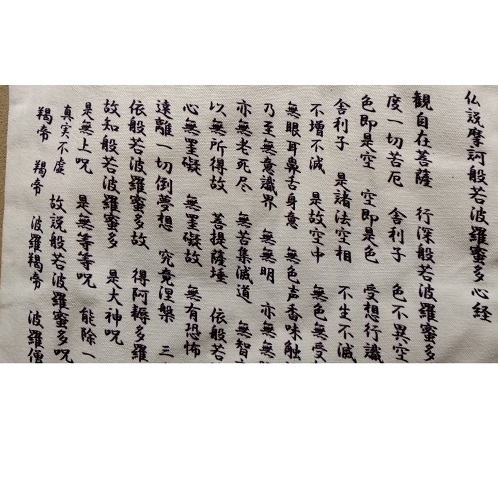 仏説摩訶般若波羅蜜多心経
観自在菩薩 行深般若波羅蜜多
度一切苦厄 舎利子 色不異空
色即是空 空即是色 受想行識
舎利子 是諸法空相 不生不滅
不増不減 是故空中 無色無受
無眼耳鼻舌身意 無色声香味触
乃至無意識界 無無明 亦無無
亦無老死尽 無苦集滅道 無智
以無所得故 菩提薩埵 依般若
心無罣礙 無罣礙故 無有恐怖
遠離一切倒夢想 究竟涅槃 三
依般若波羅蜜多故 得阿耨多羅
故知般若波羅蜜多 是大神呪
是無上呪 是無等等呪 能除一
真実不虚 故説般若波羅蜜多呪
羯帝 羯帝 波羅羯帝 波羅僧